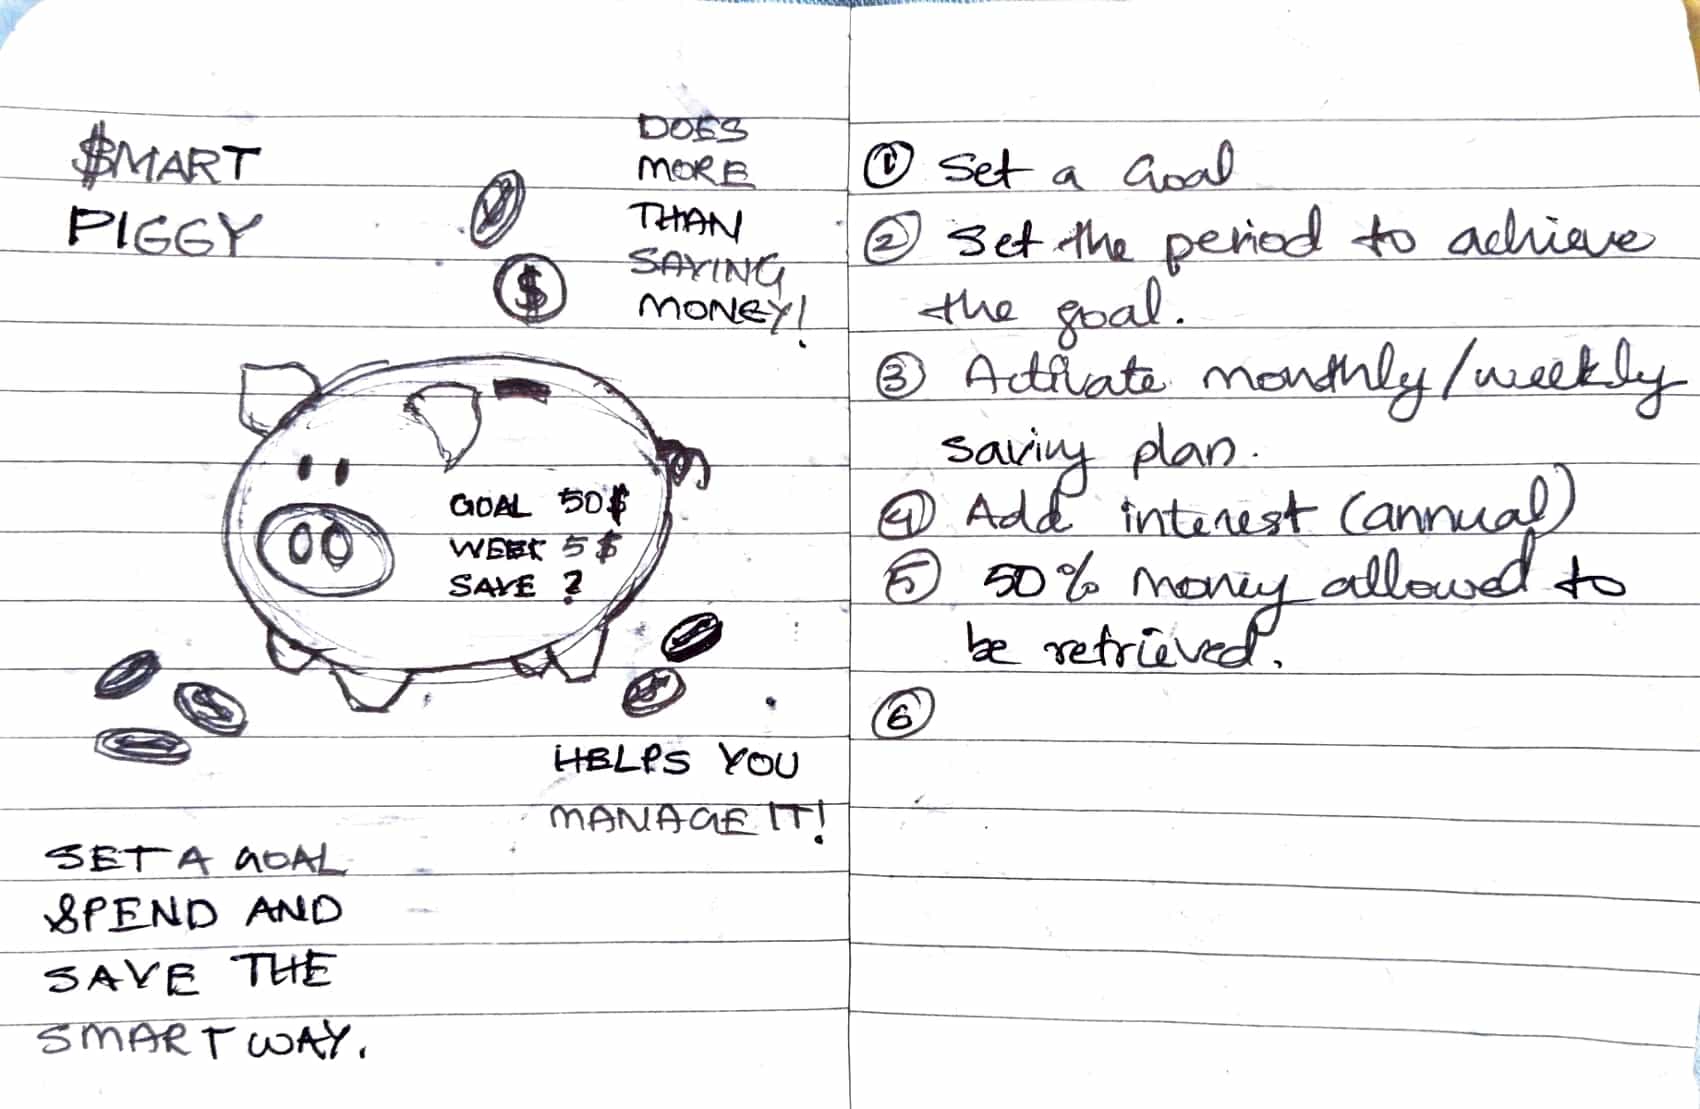 $MART
PIGGY
DOES
MORE
THAN
SAVING
MONEY!
GOAL 50$
WEEK 5$
SAVE ?
HELPS YOU
MANAGE IT!
SET A GOAL
SPEND AND
SAVE THE
SMART WAY.
① Set a Goal
② Set the period to achieve
the goal.
③ Activate monthly/weekly
saving plan.
④ Add interest (annual)
⑤ 50% money allowed to
be retrieved.
⑥